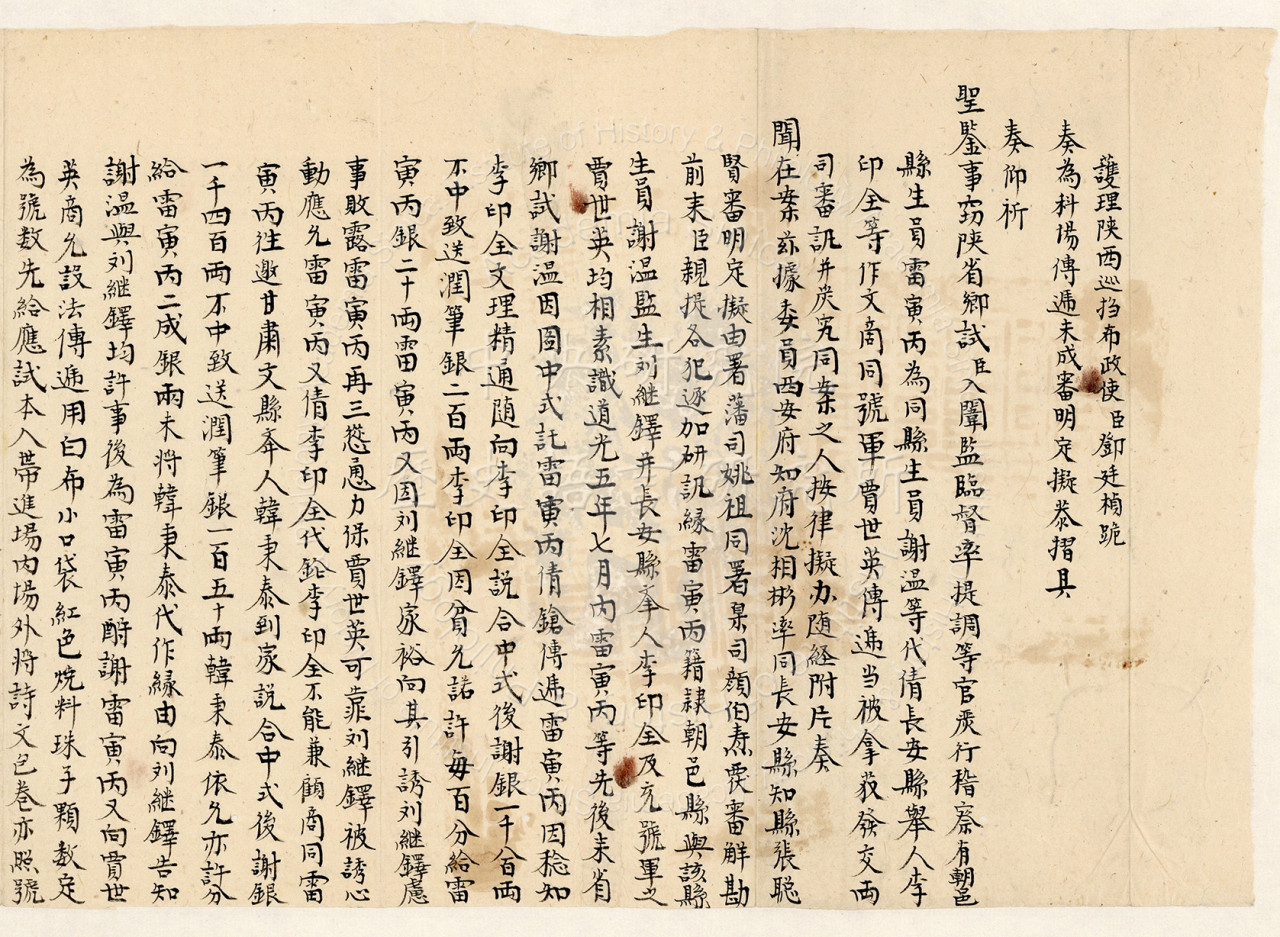 護理陕西巡撫布政使臣鄧廷楨跪
奏為科場傳遞未成審明定擬恭摺具
奏仰祈
聖鑒事窃陕省鄉試臣入闈監臨督率提調等官嚴行稽察有朝邑
縣生員雷寅丙為同縣生員謝温等代倩長安縣舉人李
印全等作文商同號軍賈世英傳遞当被拿获發交両
司審訊并究同案之人按律擬办随経附片奏
聞在案兹據委員西安府知府沈相彬率同長安縣知縣張聪
賢審明定擬由署藩司姚祖同署臬司顔伯燾覆審觧勘
前来臣親提各犯逐加研訊縁雷寅丙籍隷朝邑縣與該縣
生員謝温監生刘継鐸并長安縣奉人李印全及充號軍之
賈世英均相素識道光五年七月内雷寅丙等先後来省
鄉試謝温因圖中式託雷寅丙倩鎗傳遞雷寅丙因稔知
李印全文理精通随向李印全説合中式後謝銀一千八百両
不中致送潤筆銀二百両李印全因貧允諾許每百分給雷
寅丙銀二十両雷寅丙又因刘継鐸家裕向其引誘刘継鐸慮
事敗露雷寅丙再三慫恿力保賈世英可靠刘継鐸被誘心
動應允雷寅丙又倩李印全代鎗李印全不能兼顧商同雷
寅丙往邀甘肅文縣奉人韓秉泰到家説合中式後謝銀
一千四百両不中致送潤筆銀一百五十両韓秉泰依允亦許分
給雷寅丙二成銀両未将韓秉泰代作縁由向刘継鐸告知
謝温與刘継鐸均許事後為雷寅丙酧謝雷寅丙又向賈世
英商允設法傳遞用白布小口袋紅色燒料珠子顆数定
為號数先給應試本人帶進場内場外将詩文包卷亦照號